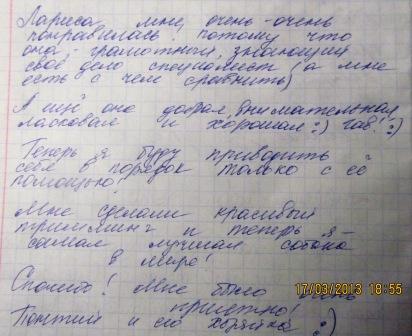 Лариса мне очень-очень
понравилась! потому что
она - грамотный, знающий
своё дело специалист (а мне
есть с чем сравнить)
А ещё она добрая, внимательная,
ласковая и хорошая :) гав! :)
Теперь я буду приводить
себя в порядок только с её
помощью!
Мне сделали красивый
тримминг и теперь я -
самая лучшая собака
в мире!
Спасибо! Мне было очень
приятно!
и его хозяйка :)
17/03/2013 18:55